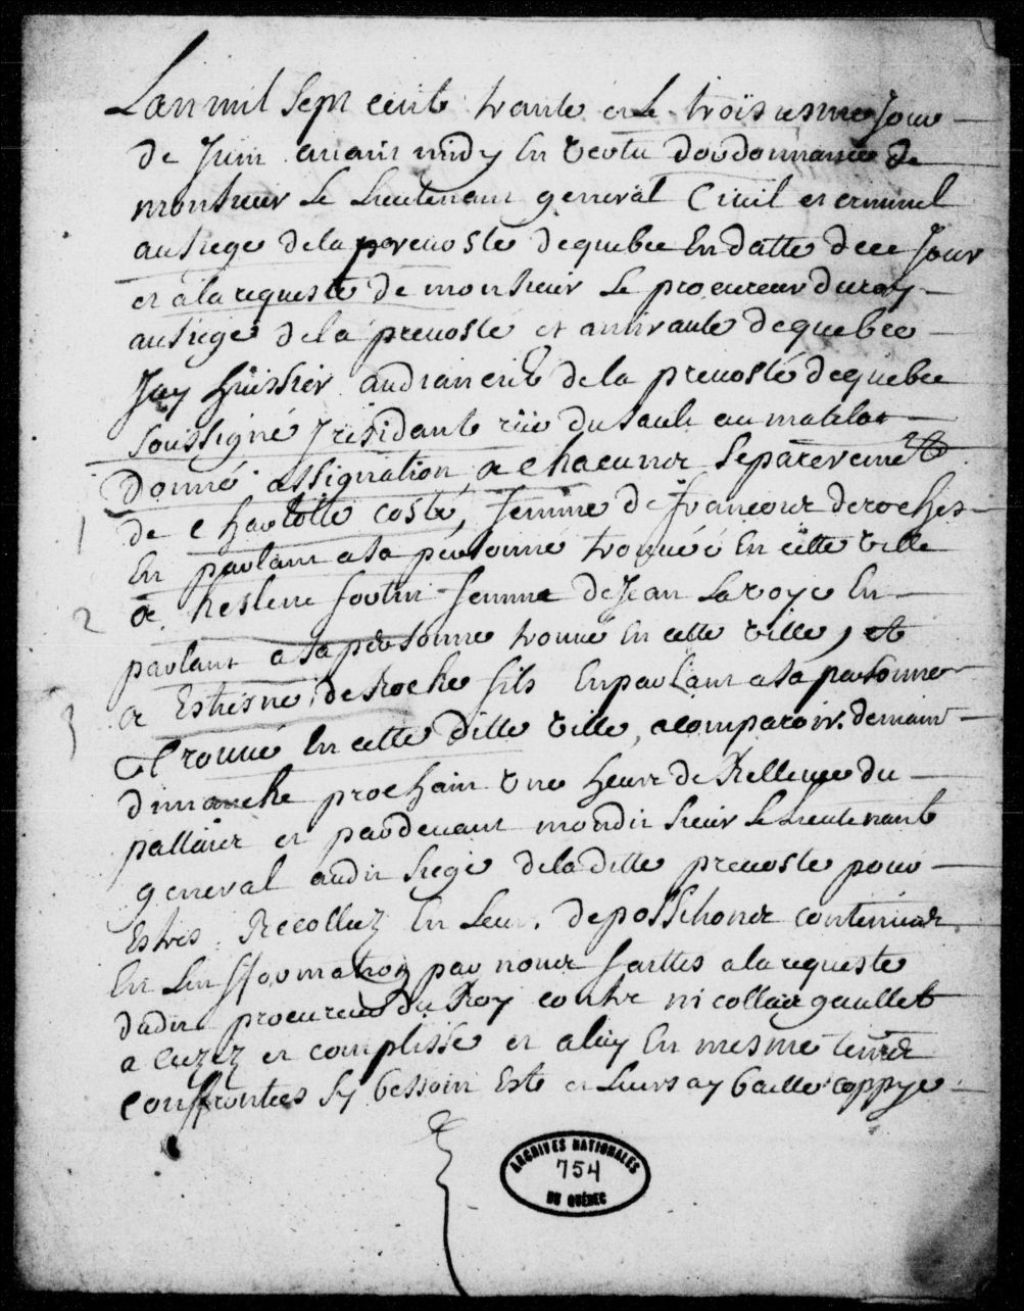 Lan mil sept cent trante et Le troisiesme Jour
de Juin avant midy En vertu dordonnance de
monsieur Le Lieutenant general Civil et criminel
au siege de la prevosté de quebec En datte de ce Jour
et a la requeste de monsieur Le procureur du roy
au siege de la prevosté et amirauté de quebec
Jay huissier audiancié de la prevosté de quebec
soussigné residant rüe du sault au matelot
Donné assignation a chacunne separement
1 de charlotte costé, femme de francois deroches
En parlant a sa personne trouvéé En cette ville
2 a heslene fortin femme de Jean Lavoye En
parlant a sa personne trouvé En cette ville, et
3 a Estiesne de Roche fils En parlant a sa personne
trouvé En cette ditte ville, a comparoir demain
dimanche prochain une heure de Rellevée du
pallais et pardevant mondit sieur Le Lieutenant
general audit siege de la ditte prevosté pour
Estres Recollez En Leur depossitiones contenues
En Linfformation par nous faittes a la requeste
dudit procureur du Roy contre nicollas gaullet
acuzez et complisse et a luy En mesme temps
conffrontees sy bessoin Est et Leurs ay baille coppye
ARCHIVES NATIONALES
754
DU QUÉBEC